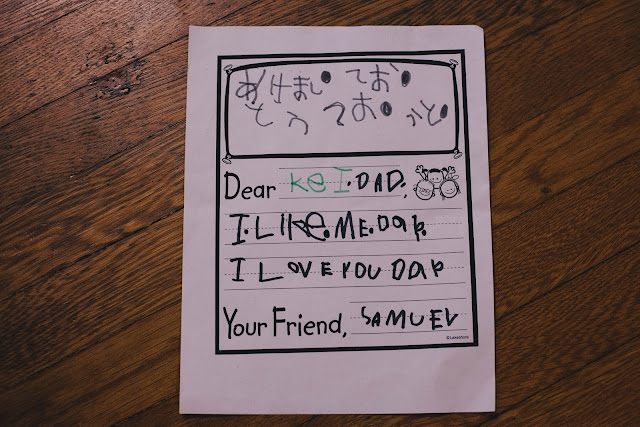 あけまして お
とうて お うと
Dear KeI.DAD,
I.LIKe.ME.DaD.
I LOVE YOU DaD
Your Friend, SAMUEL